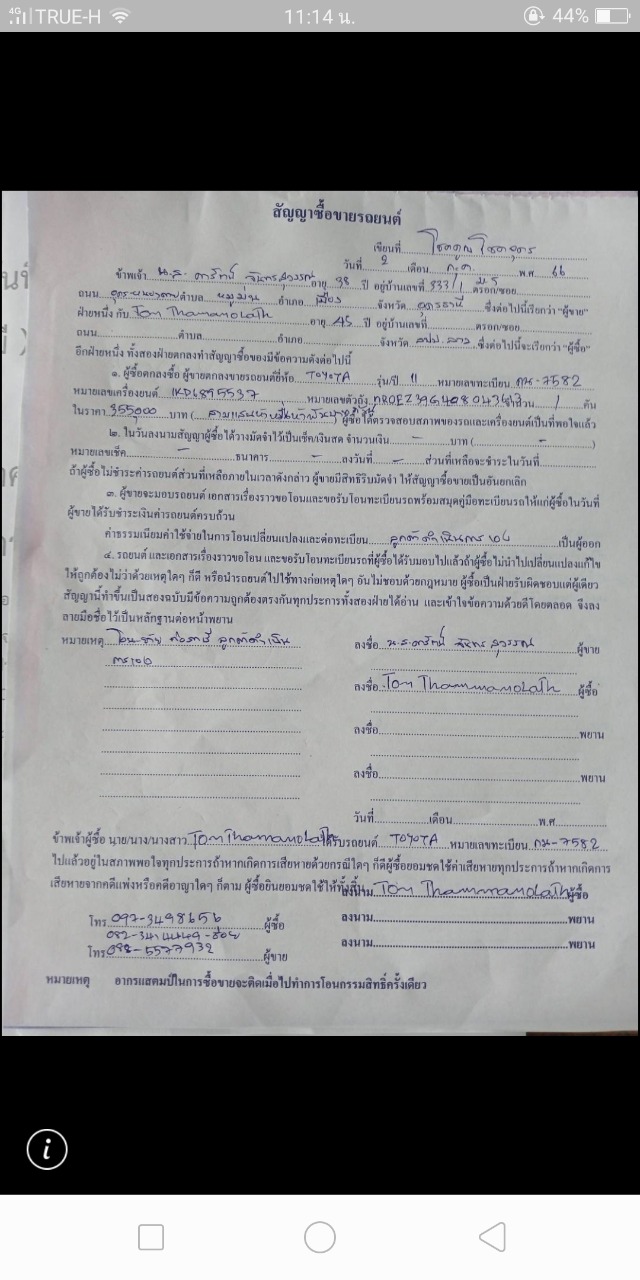 4G TRUE-H 11:14 น. 44%
สัญญาซื้อขายรถยนต์
เขียนที่
วันที่ 2 เดือน ก.ค. พ.ศ. 66
ข้าพเจ้า น.ส. ดารัตน์ จันทรสุวรรณ อายุ 38 ปี อยู่บ้านเลขที่ 333/1 ตรอก/ซอย
ถนน ตำบล หมูม่น อำเภอ เมือง จังหวัด อุดรธานี ซึ่งต่อไปนี้เรียกว่า "ผู้ขาย"
ฝ่ายหนึ่ง กับ Tom Thammanolath อายุ 45 ปี อยู่บ้านเลขที่ ตรอก/ซอย
ถนน ตำบล อำเภอ จังหวัด สปป.ลาว ซึ่งต่อไปนี้จะเรียกว่า "ผู้ซื้อ"
อีกฝ่ายหนึ่ง ทั้งสองฝ่ายตกลงทำสัญญาซื้อของมีข้อความดังต่อไปนี้
๑. ผู้ซื้อตกลงซื้อ ผู้ขายตกลงขายรถยนต์ยี่ห้อ TOYOTA รุ่น/ปี 11 หมายเลขทะเบียน กน-7582
หมายเลขเครื่องยนต์ 1KD6895537 หมายเลขตัวถัง จำนวน 1 คัน
ในราคา 355,000 บาท (สามแสนห้าหมื่นห้าพันบาท) ผู้ซื้อได้ตรวจสอบสภาพของรถและเครื่องยนต์เป็นที่พอใจแล้ว
๒. ในวันลงนามสัญญาผู้ซื้อได้วางมัดจำไว้เป็นเช็ค/เงินสด จำนวนเงิน - บาท ( - )
หมายเลขเช็ค - ธนาคาร - ลงวันที่ - ส่วนที่เหลือจะชำระในวันที่
ถ้าผู้ซื้อไม่ชำระค่ารถยนต์ส่วนที่เหลือภายในเวลาดังกล่าว ผู้ขายมีสิทธิริบมัดจำ ให้สัญญาซื้อขายเป็นอันยกเลิก
๓. ผู้ขายจะมอบรถยนต์ เอกสารเรื่องราวขอโอนและขอรับโอนทะเบียนรถพร้อมสมุดคู่มือทะเบียนรถให้แก่ผู้ซื้อในวันที่
ผู้ขายได้รับชำระเงินค่ารถยนต์ครบถ้วน
ค่าธรรมเนียมค่าใช้จ่ายในการโอนเปลี่ยนแปลงและต่อทะเบียน ลูกค้าดำเนินการเอง เป็นผู้ออก
๔. รถยนต์ และเอกสารเรื่องราวขอโอน และขอรับโอนทะเบียนรถที่ผู้ซื้อได้รับมอบไปแล้วถ้าผู้ซื้อไม่นำไปเปลี่ยนแปลงแก้ไข
ให้ถูกต้องไม่ว่าด้วยเหตุใดๆ ก็ดี หรือนำรถยนต์ไปใช้ทางก่อเหตุใดๆ อันไม่ชอบด้วยกฎหมาย ผู้ซื้อเป็นฝ่ายรับผิดชอบแต่ผู้เดียว
สัญญานี้ทำขึ้นเป็นสองฉบับมีข้อความถูกต้องตรงกันทุกประการทั้งสองฝ่ายได้อ่าน และเข้าใจข้อความด้วยดีโดยตลอด จึงลง
ลายมือชื่อไว้เป็นหลักฐานต่อหน้าพยาน
หมายเหตุ ลูกค้าดำเนิน
การเอง
ลงชื่อ น.ส. ดารัตน์ จันทรสุวรรณ ผู้ขาย
ลงชื่อ Tom Thammanolath ผู้ซื้อ
ลงชื่อ พยาน
ลงชื่อ พยาน
วันที่ เดือน พ.ศ.
ข้าพเจ้าผู้ซื้อ นาย/นาง/นางสาว Tom Thammanolath ได้รับรถยนต์ TOYOTA หมายเลขทะเบียน กน-7582
ไปแล้วอยู่ในสภาพพอใจทุกประการถ้าหากเกิดการเสียหายด้วยกรณีใดๆ ก็ดีผู้ซื้อยอมชดใช้ค่าเสียหายทุกประการถ้าหากเกิดการ
เสียหายจากคดีแพ่งหรือคดีอาญาใดๆ ก็ตาม ผู้ซื้อยินยอมชดใช้ให้ทั้งสิ้น ลงนาม Tom Thammanolath ผู้ซื้อ
โทร 097-3498656 ผู้ซื้อ
ลงนาม พยาน
โทร 098-5577932 ผู้ขาย
ลงนาม พยาน
หมายเหตุ อากรแสตมป์ในการซื้อขายจะติดเมื่อไปทำการโอนกรรมสิทธิ์ครั้งเดียว